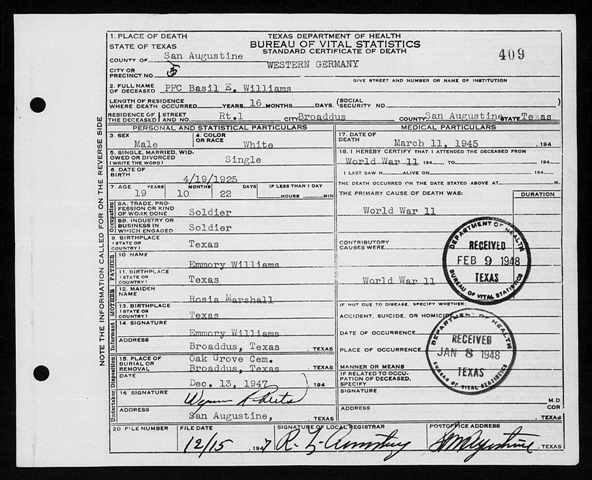 1. PLACE OF DEATH
STATE OF TEXAS
TEXAS DEPARTMENT OF HEALTH
BUREAU OF VITAL STATISTICS
STANDARD CERTIFICATE OF DEATH
409
COUNTY OF San Augustine
CITY OR PRECINCT NO. 5
WESTERN GERMANY
GIVE STREET AND NUMBER OR NAME OF INSTITUTION
2. FULL NAME OF DECEASED PFC Basil E. Williams
LENGTH OF RESIDENCE WHERE DEATH OCCURRED YEARS 16 MONTHS DAYS (SOCIAL SECURITY NO.
RESIDENCE OF THE DECEASED STREET AND NO. Rt.1 CITY Broaddus COUNTY San Augustine STATE Texas
PERSONAL AND STATISTICAL PARTICULARS
3. SEX Male
4. COLOR OR RACE White
5. SINGLE, MARRIED, WIDOWED OR DIVORCED (WRITE THE WORD) Single
6. DATE OF BIRTH 4/19/1925
7. AGE YEARS MONTHS DAYS IF LESS THAN 1 DAY
19 10 22 HOURS MIN
8A. TRADE, PROFESSION OR KIND OF WORK DONE Soldier
8B. INDUSTRY OR BUSINESS IN WHICH ENGAGED Soldier
9. BIRTHPLACE (STATE OR COUNTRY) Texas
10 NAME Emmory Williams
11. BIRTHPLACE (STATE OR COUNTRY) Texas
12. MAIDEN NAME Rosia Marshall
13. BIRTHPLACE (STATE OR COUNTRY) Texas
14 SIGNATURE Emmory Williams
ADDRESS Broaddus, Texas TEXAS
15. PLACE OF BURIAL OR REMOVAL Oak Grove Cem.
Broaddus, Texas TEXAS
DATE Dec. 13, 1947 194
16 SIGNATURE
ADDRESS San Augustine, TEXAS
MEDICAL PARTICULARS
17. DATE OF DEATH March 11, 1945 194
18. I HEREBY CERTIFY THAT I ATTENDED THE DECEASED FROM
World War 11 194 TO 194
I LAST SAW H ALIVE ON 194
THE DEATH OCCURRED ON THE DATE STATED ABOVE AT M.
THE PRIMARY CAUSE OF DEATH WAS: DURATION
World War 11
CONTRIBUTORY CAUSES WERE:
World War 11
IF NOT DUE TO DISEASE, SPECIFY WHETHER:
ACCIDENT, SUICIDE, OR HOMICIDE
DATE OF OCCURRENCE
PLACE OF OCCURRENCE
MANNER OR MEANS
IF RELATED TO OCCUPATION OF DECEASED, SPECIFY
SIGNATURE M.D
ADDRESS TEXAS
DEPARTMENT OF HEALTH
RECEIVED
FEB 9 1948
TEXAS
BUREAU OF VITAL STATISTICS
DEPARTMENT OF HEALTH
RECEIVED
JAN 8 1948
TEXAS
BUREAU OF VITAL STATISTICS
20 FILE NUMBER FILE DATE SIGNATURE OF LOCAL REGISTRAR POSTOFFICE ADDRESS
12/15 1947 San Augustine TEXAS
NOTE THE INFORMATION CALLED FOR ON THE REVERSE SIDE